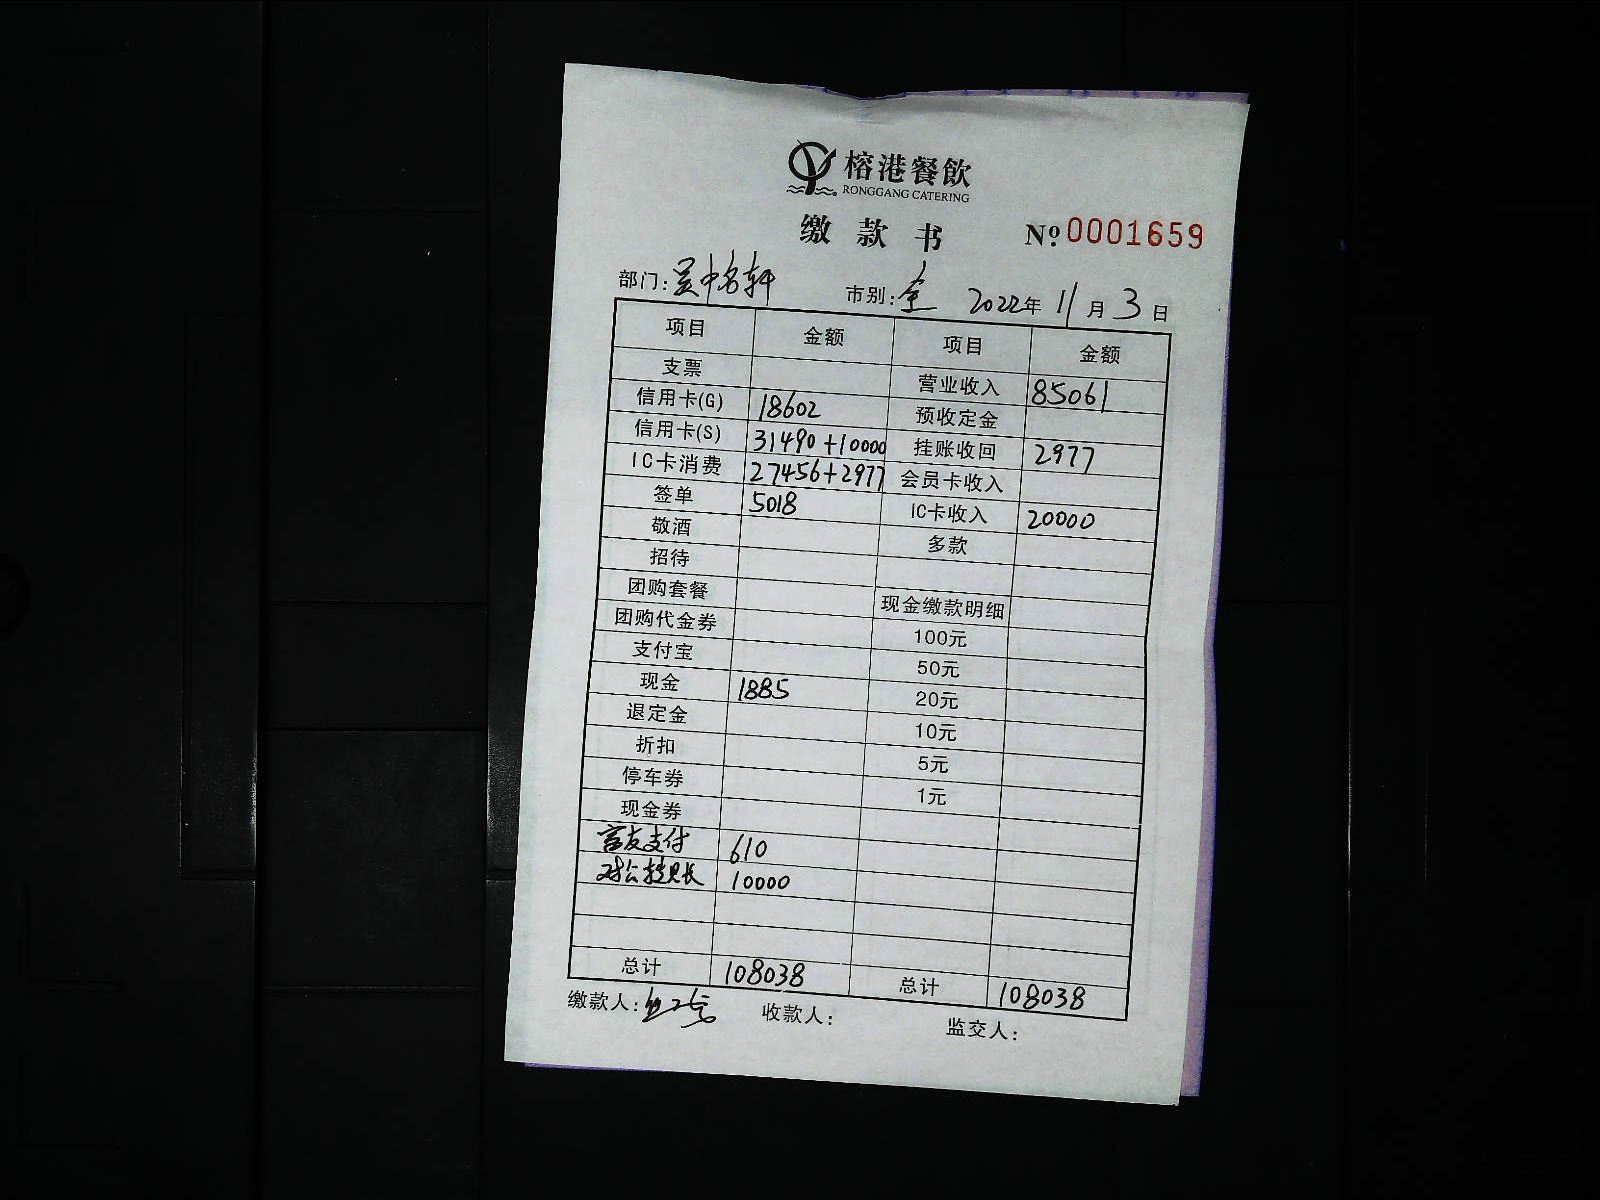 榕港餐飲
RONGGANG CATERING
缴款书 Nº 0001659
部门: 吴中名轩 市别: 全 2022年11月3日
项目 金额 项目 金额
支票 营业收入 85061
信用卡(G) 18602 预收定金
信用卡(S) 31490+10000 挂账收回 2977
IC卡消费 27456+2977 会员卡收入
签单 5018 IC卡收入 20000
敬酒 多款
招待
团购套餐 现金缴款明细
团购代金券 100元
支付宝 50元
现金 1885 20元
退定金 10元
折扣 5元
停车券 1元
现金券
富友支付 610
对公 10000
总计 108038 总计 108038
缴款人: 收款人: 监交人: